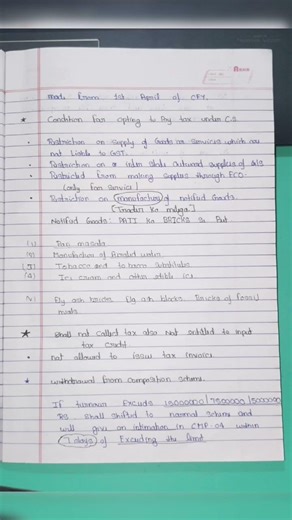 made from 1st April of CFY.
* Condition for opting to Pay tax under C.S
• Restriction on supply of Goods or Services which are
not Liable to GST.
• Restriction on inter state outward supplies of G/S
• Restricted from making supplies through ECO
(only for Service)
• Restriction on manufacture of notified Goods.
[Trader Ko milega]
Notified Goods: PATI Ka BRICKS Se Pyar
(i) Pan masala
(ii) Manufacture of Aerated water
(iii) Tobacco and tobacco Substitutes
(iv) Ice creams and other edible ice
(v) Fly ash bricks Fly ash blocks. Bricks of fossil
meals
* Shall not collect tax also Not entitled to input
tax credit
• not allowed to issue tax invoice
* withdrawal from composition scheme.
If turnover Excceds 15000000/7500000/5000000
RS shall shifted to normal scheme and
will give an intimation in CMP-04 within
7 days of Excceding the limit.